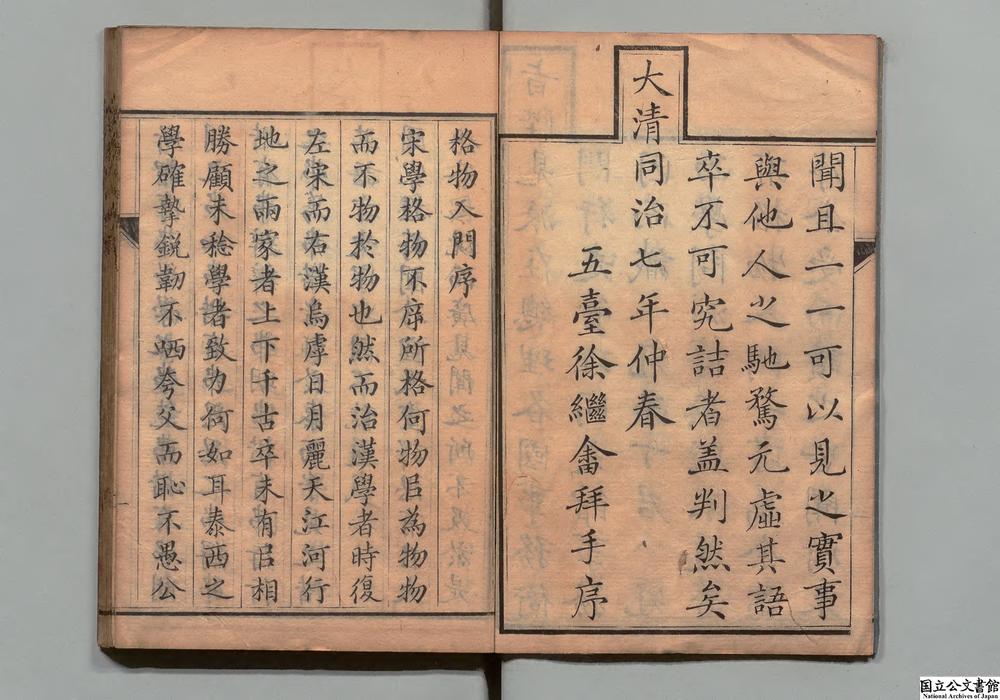 聞且一一可以見之實事
與他人之馳騖元虛其語
卒不可究詰者盖判然矣
大清同治七年仲春
五臺徐繼畬拜手序
格物入門序
宋學格物不庶所格何物㠯為物物
而不物於物也然而治漢學者時復
左宋而右漢烏虖日月麗天江河行
地之兩家者上下千古卒未有㠯相
勝顧未稔學者致力何如耳泰西之
學確摯銳韌不哂夸父而恥不愚公
国立公文書館
National Archives of Japan